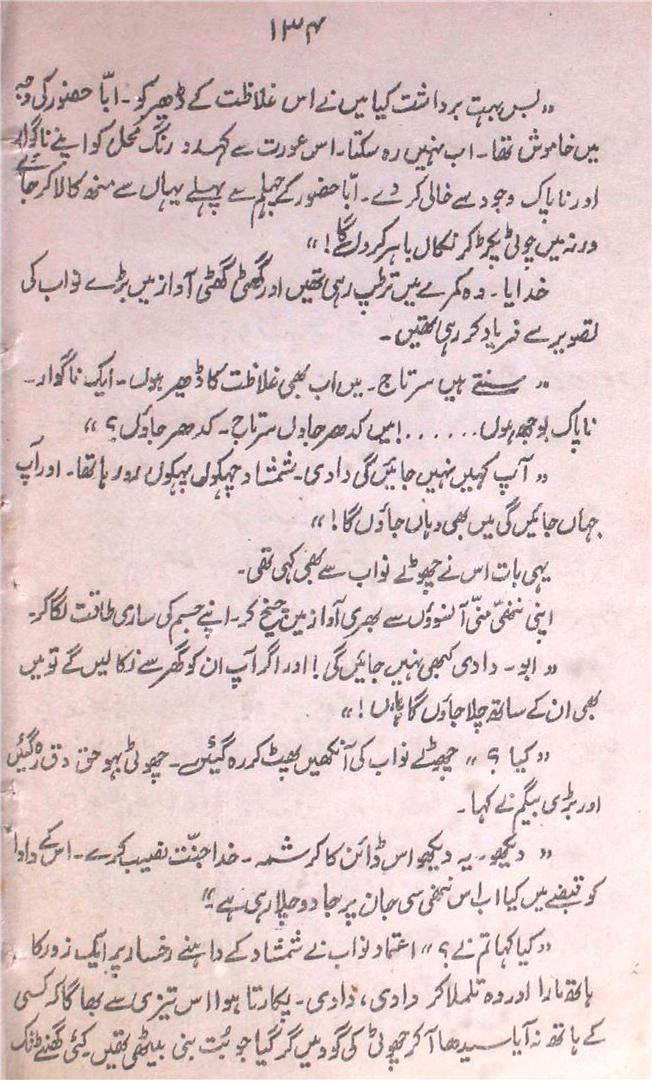 ۱۳۴
”بس بہت برداشت کیا میں نے اس غلاظت کے ڈھیر کو۔ ابّا حضور کی وجہ
میں خاموش تھا۔ اب نہیں رہ سکتا۔ اس عورت سے کہدو رنگ محل کو اپنے ناگوار
اور ناپاک وجود سے خالی کر دے۔ ابّا حضور کے چہلم سے پہلے یہاں سے منھ کالا کر جائے
ورنہ میں چوٹی پکڑ کر نکال باہر کردوں گا!“
خدایا۔ وہ کمرے میں تڑپ رہی تھیں اور گھٹی گھٹی آواز میں بڑے نواب کی
تصویر سے فریاد کر رہی تھیں۔
”سنتے ہیں سرتاج۔ میں اب بھی غلاظت کا ڈھیر ہوں۔ ایک ناگوار۔
ناپاک بوجھ ہوں......! میں کدھر جاؤں سرتاج۔ کدھر جاؤں؟“
”آپ کہیں نہیں جائیں گی دادی۔ شمشاد پھکوں پھکوں رو رہا تھا۔ اور آپ
جہاں جائیں گی میں بھی وہاں جاؤں گا!“
یہی بات اس نے چھوٹے نواب سے بھی کہی تھی۔
اپنی ننھی منّی آنسوؤں سے بھری آواز میں چیخ کر۔ اپنے جسم کی ساری طاقت لگا کر۔
”ابو۔ دادی کبھی نہیں جائیں گی! اور اگر آپ ان کو گھر سے نکالیں گے تو میں
بھی ان کے ساتھ چلا جاؤں گا ہاں!“
”کیا؟“ چھوٹے نواب کی آنکھیں پھٹ کر رہ گئیں۔ چھوٹی بہو حق دق رہ گئیں
اور بڑی بیگم نے کہا۔
”دیکھو۔ یہ دیکھو اس ڈائن کا کرشمہ۔ خدا جنّت نصیب کرے۔ اس کے دادا
کو قبضے میں کیا اب اس ننھی سی جان پر جادو چلا رہی ہے۔“
”کیا کہا تم نے؟“ اعتماد نواب نے شمشاد کے داہنے رخسار پر ایک زور کا
ہاتھ مارا اور وہ تلملا کر دادی، دادی۔ پکارتا ہوا اس تیزی سے بھاگا کہ کسی
کے ہاتھ نہ آیا سیدھا آ کر چھوٹی کی گود میں گر گیا جو بُت بنی بیٹھی تھیں۔ کئی گھنٹے تک